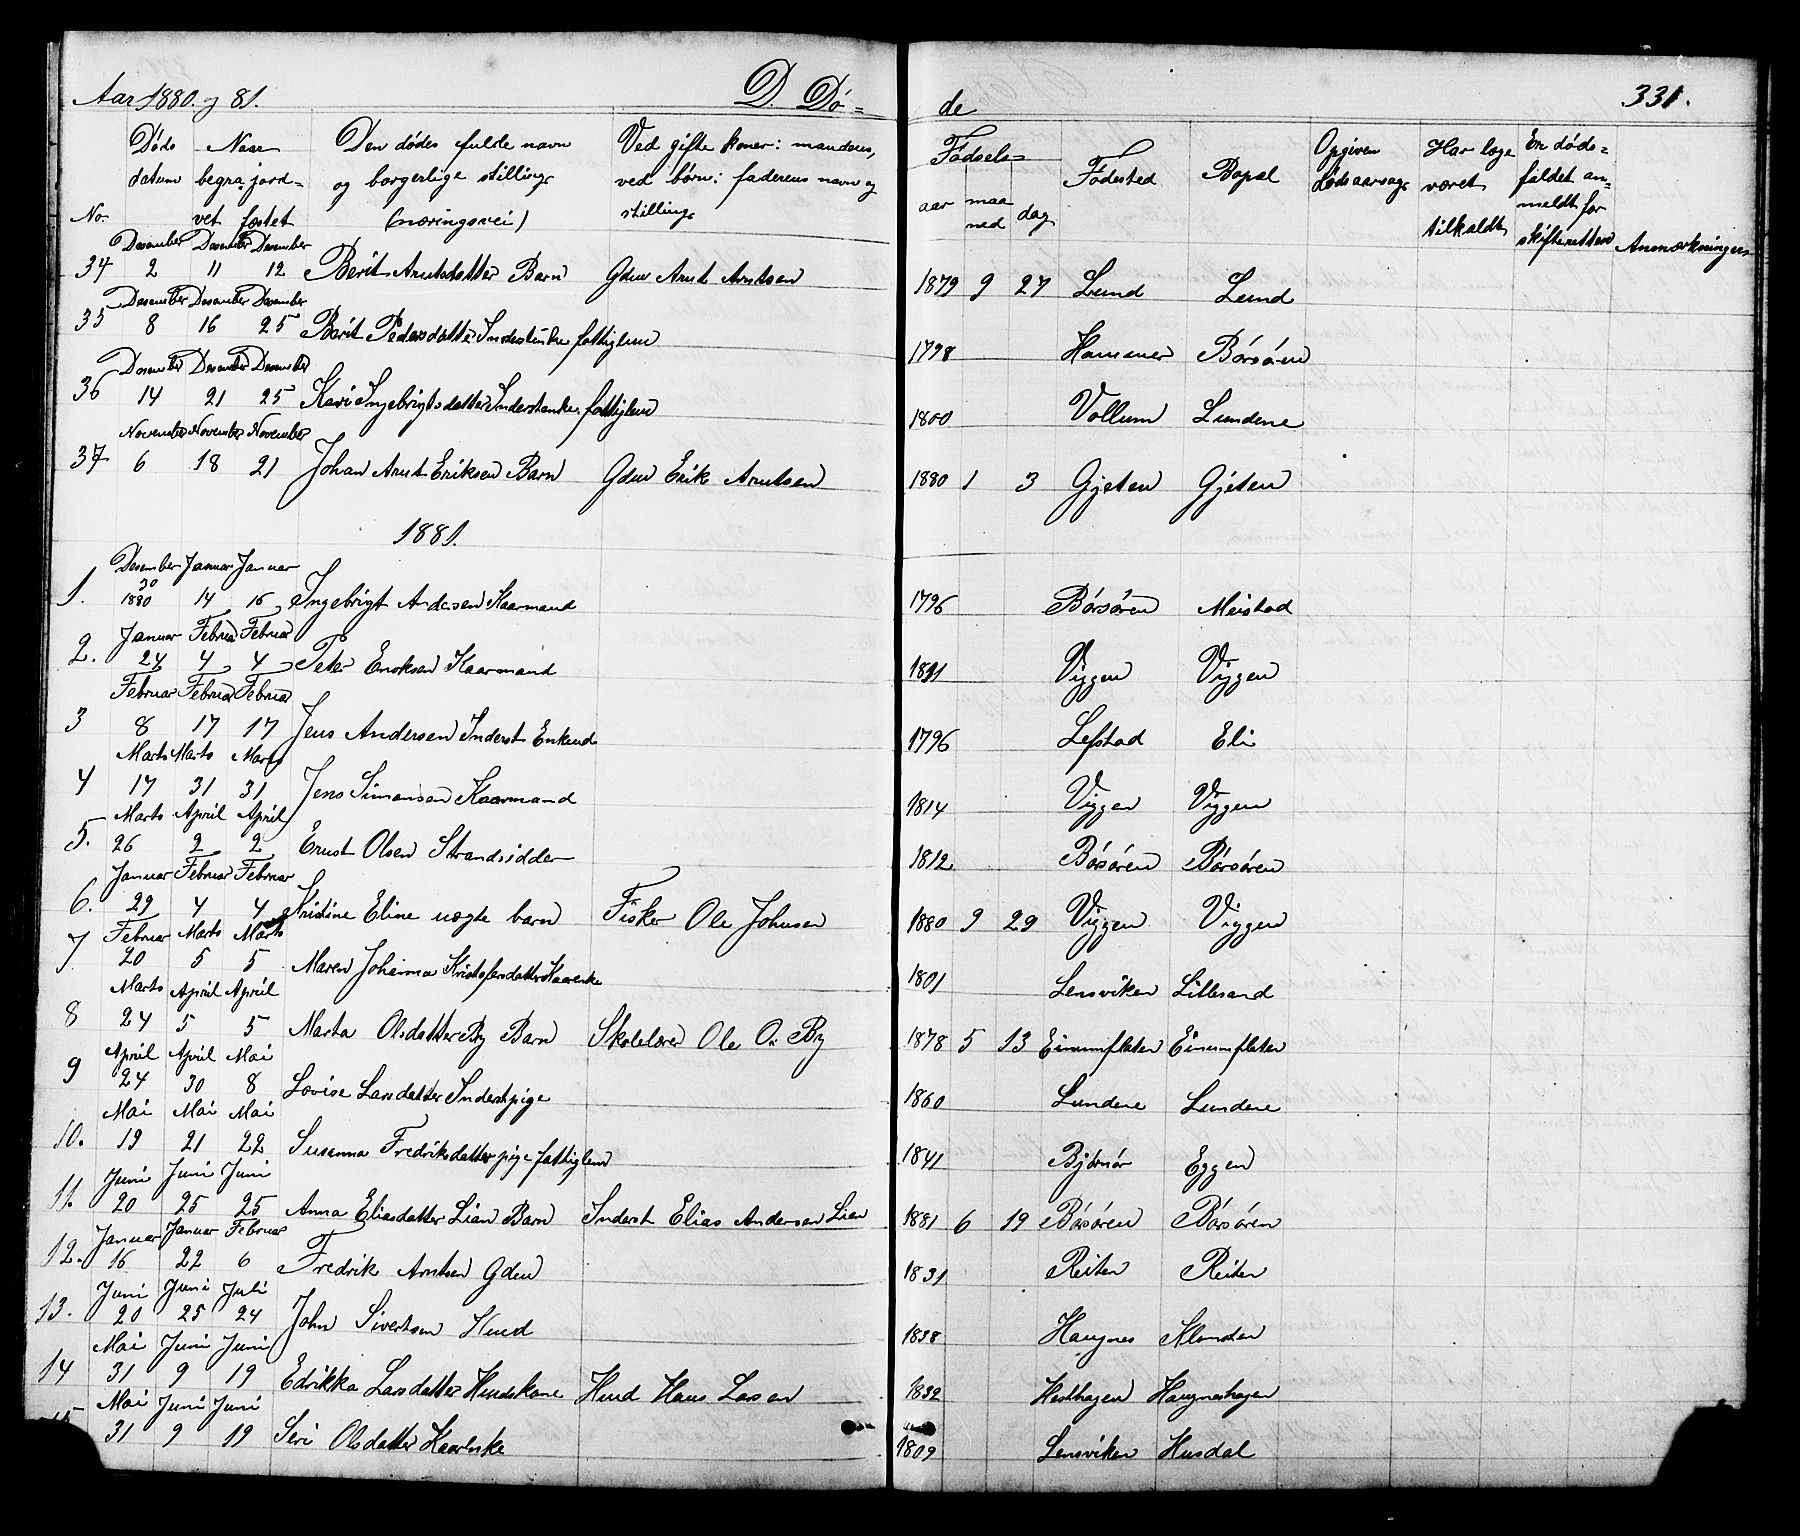 Aar 1880 og 81. D. Dö= de 331.
No. Döds datum Naar begra= vet jord= fæstet Den dödes fulde navn og borgerlige stilling (næringsvei) Ved gifte koner: mandens, ved börn: faderens navn og stilling Födsels= aar maa ned dag Födested Bopæl Opgiven dödsaarsag Har læge været tilkaldt Er döds= faldet an= meldt for skifteretten Anmærkninger
Desember Desember Desember
34 2 11 12 Berit Arntsdatter Barn Gdm Arnt Arntsen 1879 9 27 Lund Lund
Desember Desember Desember
35 8 16 25 Berit Pedersdatter Inderstenke fattiglem 1798 Hammer Börsören
Desember Desember Desember
36 14 21 25 Kari Ingebrigtsdatter Inderstenke fattiglem 1800 Vollum Lundene
November November November
37 6 18 21 Johan Arnt Eriksen Barn Gdm Erik Arntsen 1880 1 3 Gjeten Gjeten
1881.
Desember Januar Januar
1. 30 1880 14 16 Ingebrigt Andersen Kaarmand 1796 Börsören Meistad
Januar Februar Februar
2. 24 4 4 Peter Eriksen Kaarmand 1811 Viggen Viggen
Februar Februar Februar
3 8 17 17 Jens Andersen Inderst Enkemd 1796 Lefstad Eli
Marts Marts Marts
4 17 31 31 Jens Simonsen Kaarmand 1814 Viggen Viggen
Marts April April
5. 26 2 2 Ernst Olsen Strandsidder 1812 Börsören Börsören
Januar Februar Februar
6. 29 4 4 Kristine Eline uægte barn Fisker Ole Johnsen 1880 9 29 Viggen Viggen
Februar Marts Marts
7 20 5 5 Maren Johanna Kristofersdatter Kaarenke 1801 Lensviken Lillesand
Marts April April
8 24 5 5 Marta Olsdatter By Barn Skolelærer Ole O. By 1878 5 13 Einumflaten Einumflaten
April April Mai
9 24 30 8 Lovise Larsdatter Inderstpige 1860 Lundene Lundene
Mai Mai Mai
10. 19 21 22 Susanna Fredriksdatter pige fattiglem 1841 Björnör Eggen
Juni Juni Juni
11. 20 25 25 Anna Eliasdatter Lian Barn Inderst Elias Andersen Lian 1881 6 19 Börsören Börsören
Januar Januar Februar
12. 16 22 6 Fredrik Arntsen Gdm 1831 Reiten Reiten
Juni Juni Juli
13. 20 25 24 John Sivertsen Hmd 1838 Haugnes
Mai Juni Juni
14 31 9 19 Edrikka Larsdatter Hmdskone Hmd Hans Larsen 1832 Hesthagen Haugneshagen
Mai Juni Juni
31 9 19 Seri Olsdatter Kaarenke 1809 Lensviken Husdal